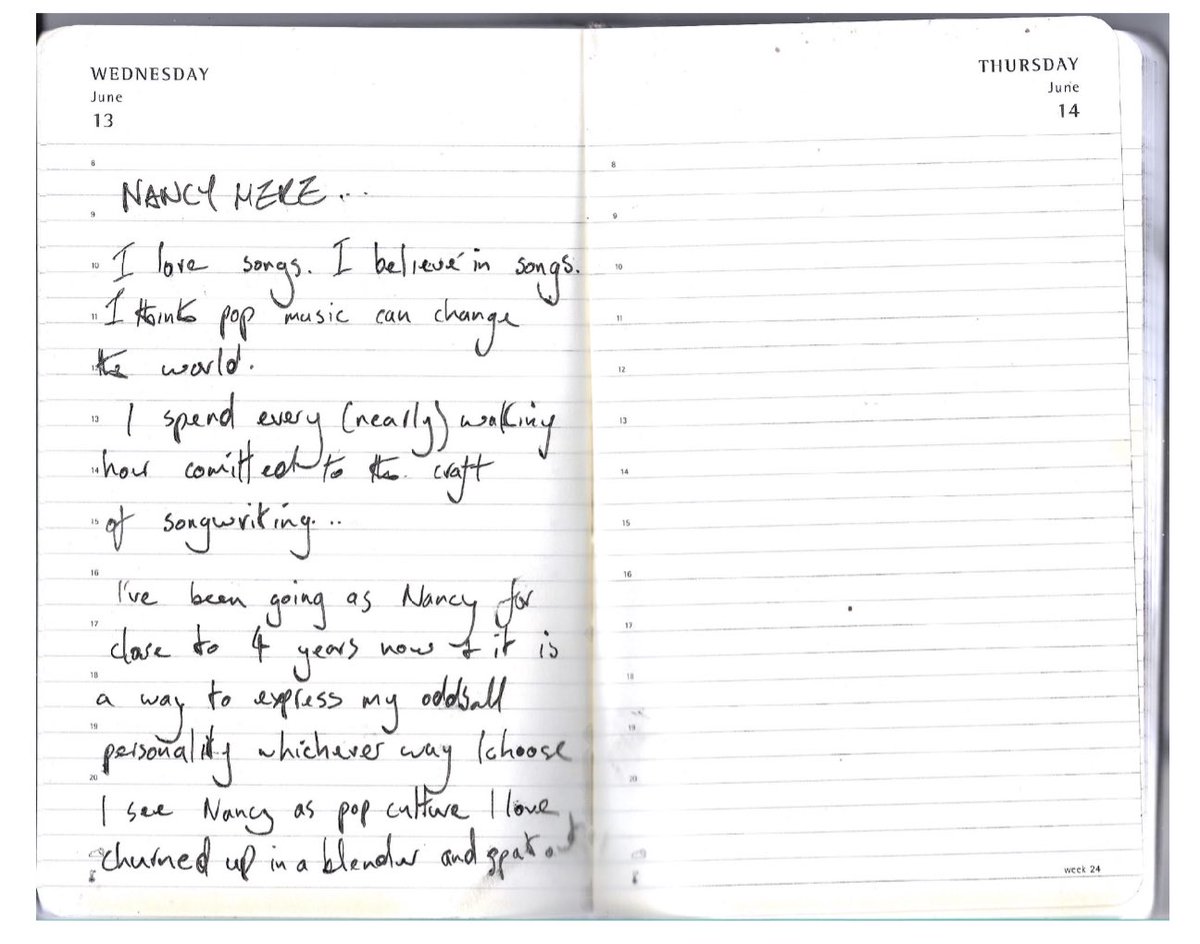 WEDNESDAY
June
13
8
NANCY HERE...
9
10 I love songs. I believe in songs.
11 I think pop music can change
12 the world.
13 I spend every (nearly) walking
14 hour comitted to the craft
15 of songwriting...
16
I've been going as Nancy for
17
close to 4 years now + it is
18
a way to express my oddball
19
personality whichever way I choose
20
I see Nancy as pop culture I love
churned up in a blender and spat out
THURSDAY
June
14
8
9
10
11
12
13
14
15
16
17
18
19
20
week 24